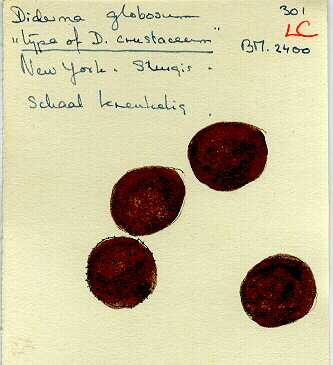 Diderma globosum
"type of D. crustaceum"
New York. Sturgis.
Schaal kreukelig.
301
LC
BM. 2400